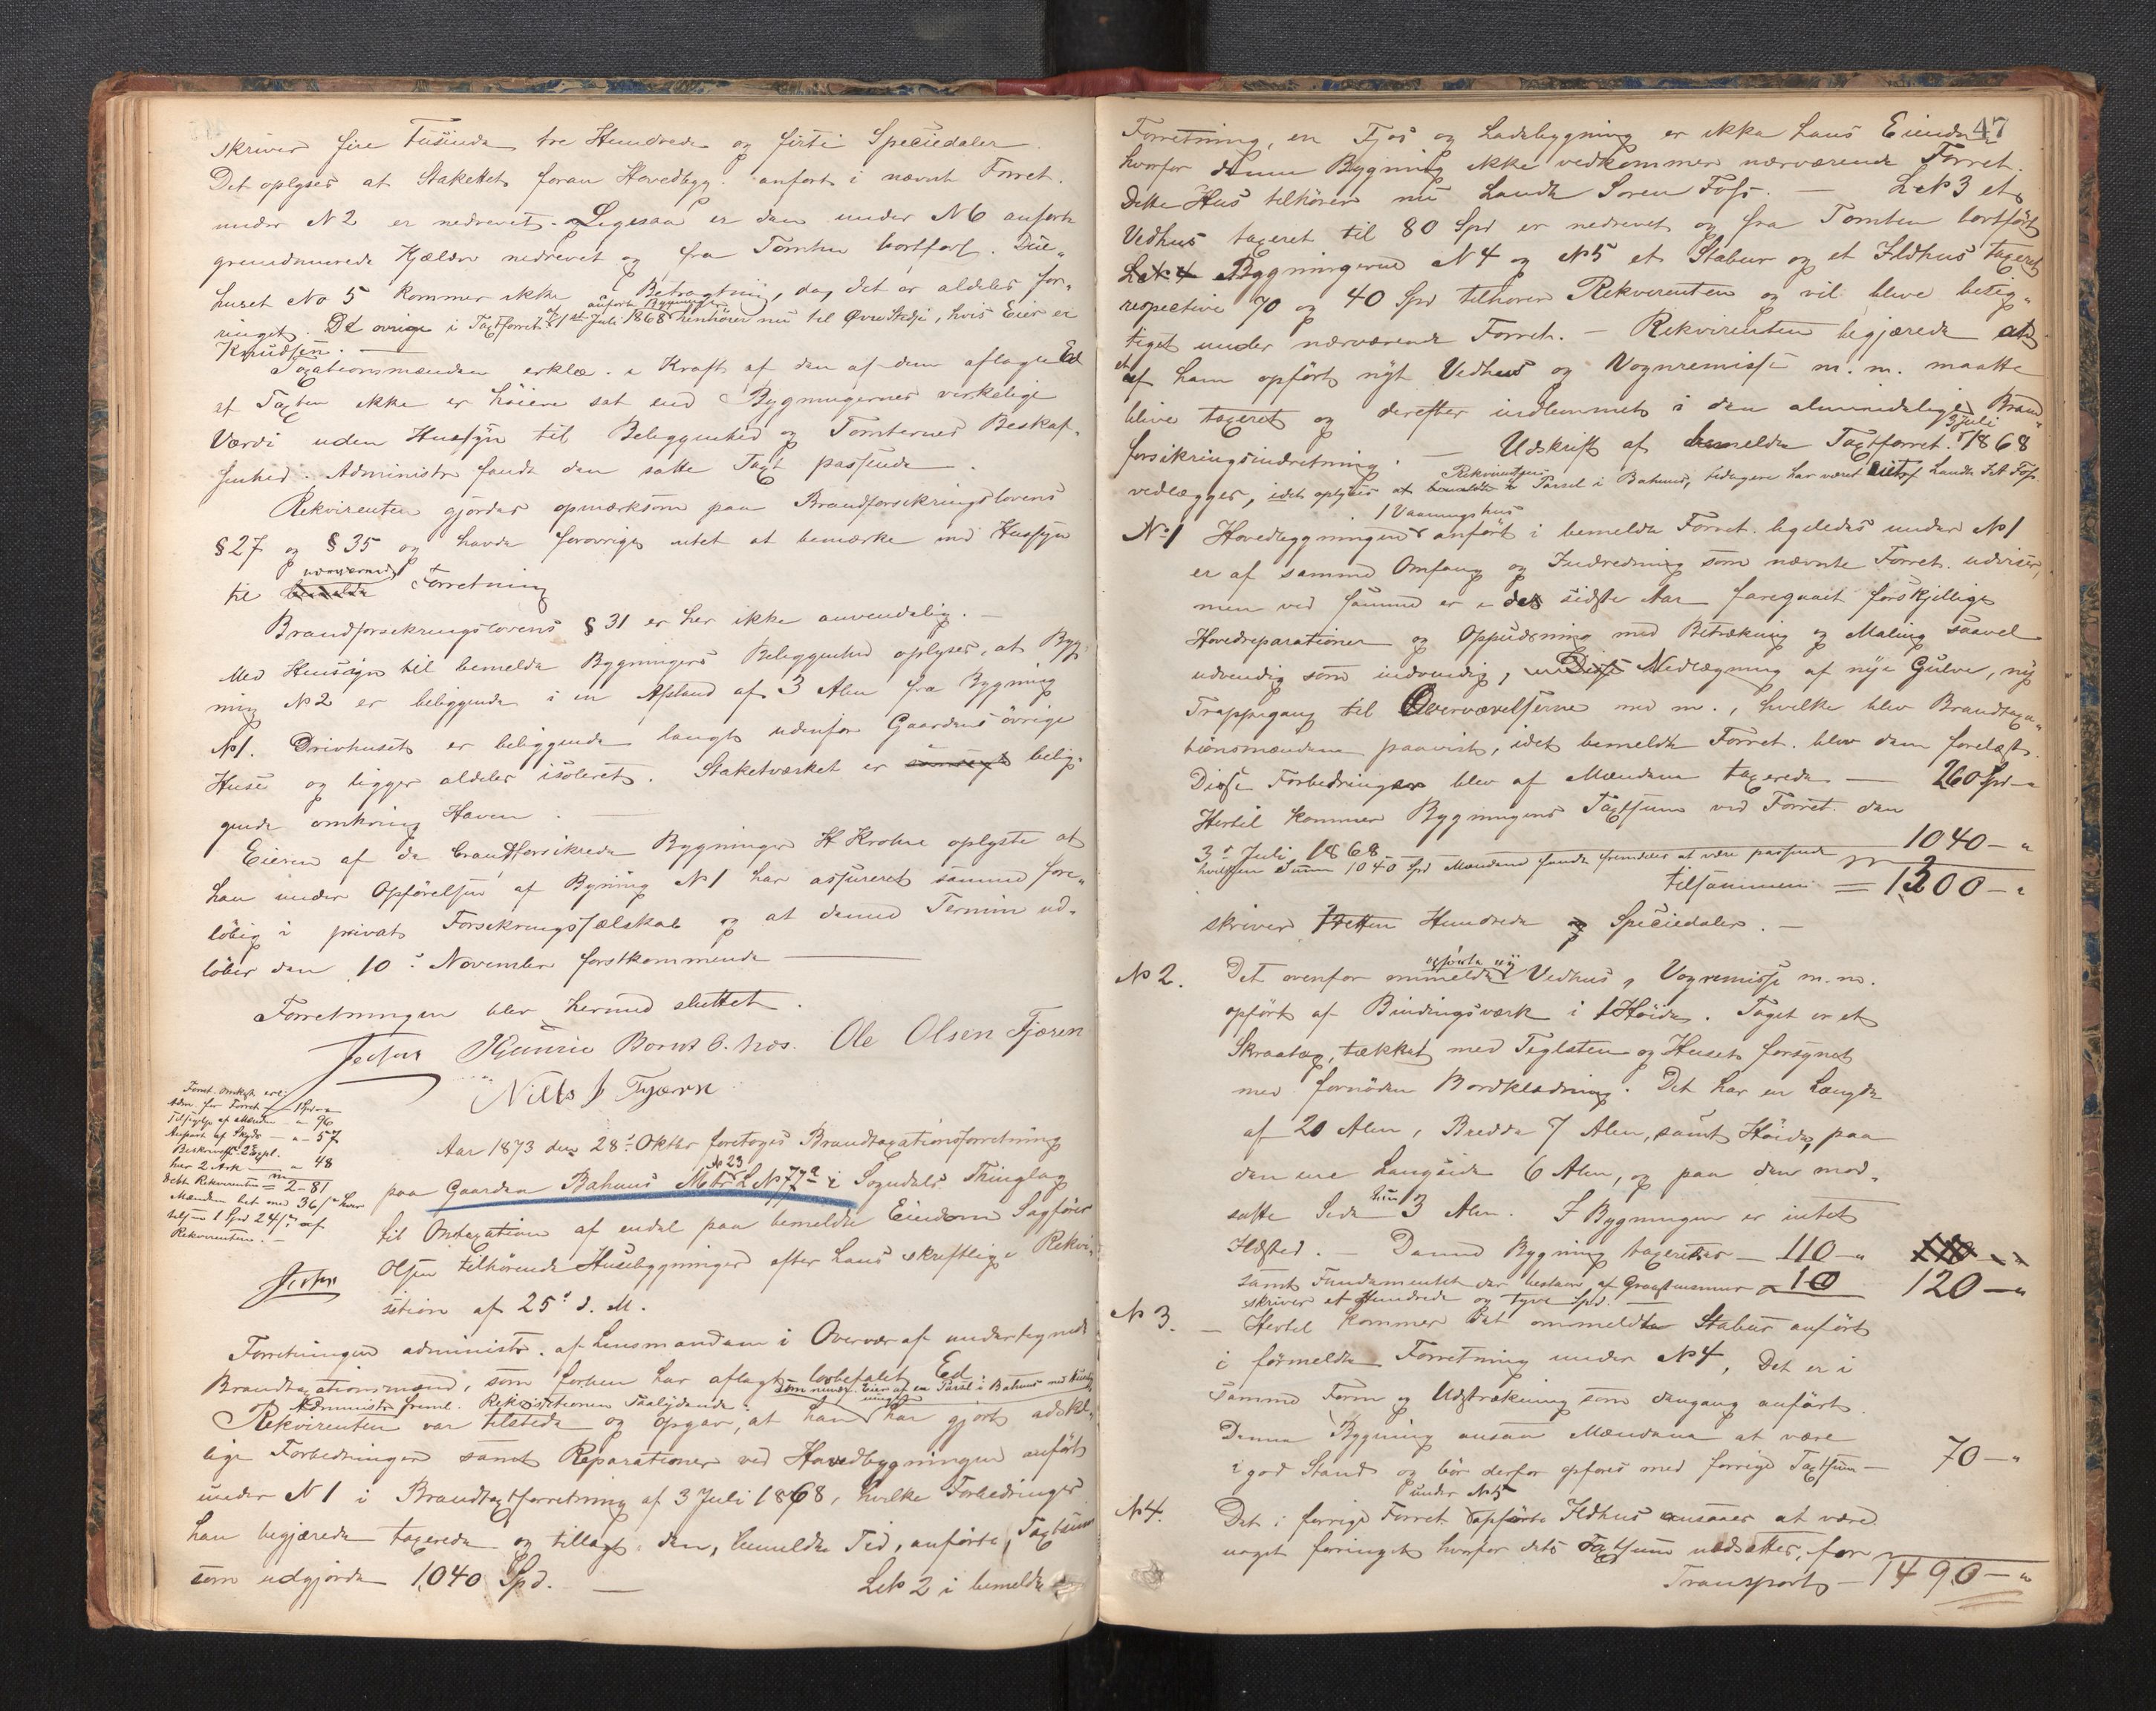 skriver fire Tusinde tre Hundrede og firti Speciedaler.
Det oplyses at Stakettet foran Hovedbygg. anført i nævnte Forret.
under N 2 er nedrevet. Ligesaa er den under N 6 anførte
grundmurede Kjælder nedrevet og fra Tomten bortført.
huset No 5 kommer ikke i Betragtning, da det er aldeles for-
ringet. De øvrige i Taxtforret. af 1st Juli 1868 anførte Bygninger henhører nu til Øvre Stedje, hvis Eier er
Knudsen. —
Taxationsmændene erklæ. i Kraft af den af dem aflagte Ed
at Taxten ikke er høiere sat end Bygningernes virkelige
Værdi uden Hensyn til Beliggenhed og Tomternes Beskaf-
fenhed. Administr fandt den satte Taxt passende.
Rekvirenten gjordes opmærksom paa Brandforsikringslovens
§ 27 og § 35 og havde forøvrigt intet at bemærke med Hensyn
til nærværende Forretning
Brandforsikringslovens § 31 er her ikke anvendelig. —
Med Hensyn til bemeldte Bygningers Beliggenhed oplyses, at Byg-
ning N 2 er beliggende i en Afstand af 3 Alen fra Bygning
N 1. Drivhuset er beliggende langt udenfor Gaardens øvrige
Huse og ligger aldeles isoleret. Staketværket er belig-
gende omkring Haven. —
Eieren af de brandforsikrede Bygninger H Krohn oplyste at
han under Opførelsen af Bygning N 1 har assureret samme fore-
løbig i privat Forsikringsselskab og at denne Termin ud-
løber den 10de November førstkommende —
Forretningen blev hermed sluttet.
Ole Olsen Fjæren
Nills J Fjæren
Forret. Omkost. erl.
Adm for Forret — 1 Spd
Tilsigelse af Mænden — 96
Anpart af Skyds — 57
her 2 Ark — 48
2-81
Mænden bet. med 36 s hver
tils. 1 Spd 24 s af
Rekvirenten. —
Aar 1873 den 28de Oktbr foretoges Brandtaxationsforretning
paa Gaarden Bahuns Mtr N 23 L N 77a i Sogndals Thinglag
til Omtaxation af endel paa bemeldte Eiendom Sagfører
Olsen tilhørende Husebygninger efter hans skriftlige Rekvi-
sition af 25de d. M.
Forretningen administr. af Lensmanden i Overvær af undertegnede
Brandtaxationsmænd, som forhen har aflagt lovbefalet Ed.
Administr. freml. Rekvisitionen saalydende:
Rekvirenten var tilstede og opgav, at han som nuvær. Eier af en Parsel i Bahuns har gjort adskil-
lige Forbedringer samt Reparationer ved Hovedbygningen anført
under N 1 i Brandtaxtforretning af 3 Juli 1868, hvilke Forbedringer
han begjærede taxerede og tillagt den, bemeldte Tid, anførte Taxtsum
som udgjorde 1040 Spd. — L N 2 i bemeldte
47
Forretning, en Fjøs og Ladebygning er ikke hans Eiendom
hvorfor denne Bygning ikke vedkommer nærværende Forret.
Dette Hus tilhører nu Landh Søren Foss. — L N 3 et
Vedhus taxeret til 80 Spd er nedrevet og fra Tomten bortført
Bygningerne N 4 og N 5 et Stabur og et Ildhus taxeret
respective 70 og 40 Spd tilhører Rekvirenten og vil blive besig-
tiget under nærværende Forret. — Rekvirenten begjærede at
et af ham opført nyt Vedhus og Vognremisse m. m. maatte
blive taxeret og derefter indlemmet i den almindelige Brand-
forsikringsindretning. — Udskrift af bemeldte Taxtforret. 3 Juli 1868
vedlægges, idet oplyses at Rekvirentens Parsel i Bahuns, tidligere har været eiet af Landh. Foss.
N 1 Hovedbygningen 1 Vaaningshus anført i bemeldte Forret. ligeledes under N 1
er af samme Omfang og Indredning som nævnte Forret. udviser,
men ved samme er i det sidste Aar foregaaet forskjellige
Hovedreparationer og Oppudsning med Betrækning og Maling saavel
udvendig som indvendig, Nedlægning af nye Gulve, ny
Trappegang til Overværelserne med m., hvilke blev Brandtaxa-
tionsmændene paavist, idet bemeldte Forret. blev dem forelæst.
Disse Forbedringer blev af Mændene taxerede — 260 Spd — "
Hertil kommer Bygningens Taxtsum ved Forret. den
3de Juli 1868 — 1040 — "
hvilken Sum 1040 Spd Mændene fandt fremdeles at være passende
tilsammen = 1300 — "
skriver tretten Hundrede Speciedaler. —
N 2. Det ovenfor ommeldte opførte ny Vedhus, Vognremisse m. m.
opført af Bindingsværk i 1 Høide. Taget er et
Skraatag, tækket med Teglsten og Huset forsynet
med fornøden Bordklædning. Det har en Længde
af 20 Alen, Bredde 7 Alen, samt Høide, paa
den ene Langside 6 Alen, og paa den mod-
satte Side kun 3 Alen. I Bygningen er intet
Ildsted. — Denne Bygning taxeres — 110 — "
samt Fundamentet der bestaar af Graastensmur — 10 120 — "
skriver et Hundrede og tyve Spd. —
N 3. — Hertil kommer Det ommeldte Stabur anført
i førmeldte Forretning under N 4, Det er i
samme Form og Udstrækning som dengang anført.
Denne Bygning ansaa Mændene at være
i god Stand og bør derfor opføres med forrige Taxtsum — 70 — "
N 4. Det i forrige Forret under N 5 opførte Ildhus ansaaes at være
noget forringet hvorfor dets Taxtsum nedsættes, for
Transport — 1490 — "